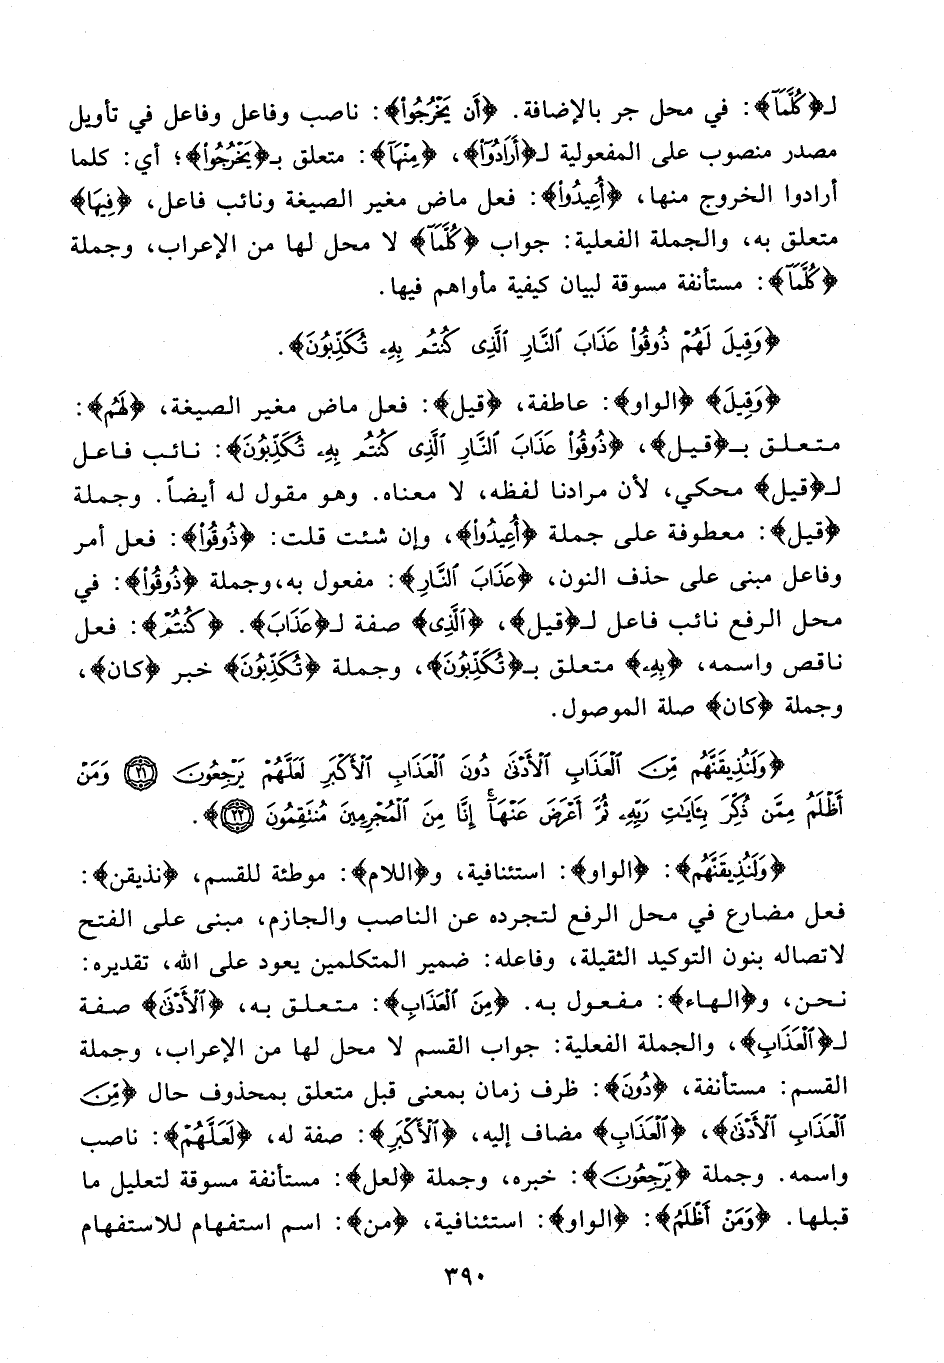 لـ﴿كُلَّمَآ﴾: في محل جر بالإضافة. ﴿أَن يَخْرُجُوا۟﴾: ناصب وفاعل وفاعل في تأويل
مصدر منصوب على المفعولية لـ﴿أَرَادُوٓا۟﴾، ﴿مِنْهَآ﴾: متعلق بـ﴿يَخْرُجُوا۟﴾؛ أي: كلما
أرادوا الخروج منها، ﴿أُعِيدُوا۟﴾: فعل ماض مغير الصيغة ونائب فاعل، ﴿فِيهَا﴾
متعلق به، والجملة الفعلية: جواب ﴿كُلَّمَآ﴾ لا محل لها من الإعراب، وجملة
﴿كُلَّمَآ﴾: مستأنفة مسوقة لبيان كيفية مأواهم فيها.
﴿وَقِيلَ لَهُمْ ذُوقُوا۟ عَذَابَ ٱلنَّارِ ٱلَّذِى كُنتُم بِهِۦ تُكَذِّبُونَ﴾.
﴿وَقِيلَ﴾ ﴿الواو﴾: عاطفة، ﴿قيل﴾: فعل ماض مغير الصيغة، ﴿لَهُم﴾:
متعلق بـ﴿قيل﴾، ﴿ذُوقُوا۟ عَذَابَ ٱلنَّارِ ٱلَّذِى كُنتُم بِهِۦ تُكَذِّبُونَ﴾: نائب فاعل
لـ﴿قيل﴾ محكي، لأن مرادنا لفظه، لا معناه. وهو مقول له أيضاً. وجملة
﴿قيل﴾: معطوفة على جملة ﴿أُعِيدُوا۟﴾، وإن شئت قلت: ﴿ذُوقُوا۟﴾: فعل أمر
وفاعل مبنى على حذف النون، ﴿عَذَابَ ٱلنَّارِ﴾: مفعول به، وجملة ﴿ذُوقُوا۟﴾: في
محل الرفع نائب فاعل لـ﴿قيل﴾، ﴿ٱلَّذِى﴾ صفة لـ﴿عَذَابَ﴾. ﴿كُنتُمْ﴾: فعل
ناقص واسمه، ﴿بِهِۦ﴾ متعلق بـ﴿تُكَذِّبُونَ﴾، وجملة ﴿تُكَذِّبُونَ﴾ خبر ﴿كان﴾،
وجملة ﴿كان﴾ صلة الموصول.
﴿وَلَنُذِيقَنَّهُم مِّنَ ٱلْعَذَابِ ٱلْأَدْنَىٰ دُونَ ٱلْعَذَابِ ٱلْأَكْبَرِ لَعَلَّهُمْ يَرْجِعُونَ ٢١ وَمَنْ
أَظْلَمُ مِمَّن ذُكِّرَ بِـَٔايَـٰتِ رَبِّهِۦ ثُمَّ أَعْرَضَ عَنْهَآ ۚ إِنَّا مِنَ ٱلْمُجْرِمِينَ مُنتَقِمُونَ ٢٢﴾.
﴿وَلَنُذِيقَنَّهُم﴾: ﴿الواو﴾: استئنافية، و﴿اللام﴾: موطئة للقسم، ﴿نذيقن﴾:
فعل مضارع في محل الرفع لتجرده عن الناصب والجازم، مبنى على الفتح
لاتصاله بنون التوكيد الثقيلة، وفاعله: ضمير المتكلمين يعود على الله، تقديره:
نحن، و﴿الهاء﴾: مفعول به. ﴿مِنَ ٱلْعَذَابِ﴾: متعلق به، ﴿ٱلْأَدْنَىٰ﴾ صفة
لـ﴿ٱلْعَذَابِ﴾، والجملة الفعلية: جواب القسم لا محل لها من الإعراب، وجملة
القسم: مستأنفة، ﴿دُونَ﴾: ظرف زمان بمعنى قبل متعلق بمحذوف حال ﴿مِّنَ
ٱلْعَذَابِ ٱلْأَدْنَىٰ﴾، ﴿ٱلْعَذَابِ﴾ مضاف إليه، ﴿ٱلْأَكْبَرِ﴾: صفة له، ﴿لَعَلَّهُمْ﴾: ناصب
واسمه. وجملة ﴿يَرْجِعُونَ﴾: خبره، وجملة ﴿لعل﴾: مستأنفة مسوقة لتعليل ما
قبلها. ﴿وَمَنْ أَظْلَمُ﴾: ﴿الواو﴾: استئنافية، ﴿من﴾: اسم استفهام للاستفهام
٣٩٠